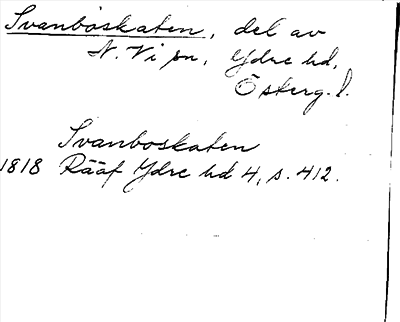 Svanboskaten, del av
N. Vi sn, Ydre hd,
Österg. l.
Svanboskaten
1818 Rääf Ydre hd 4, s. 412.